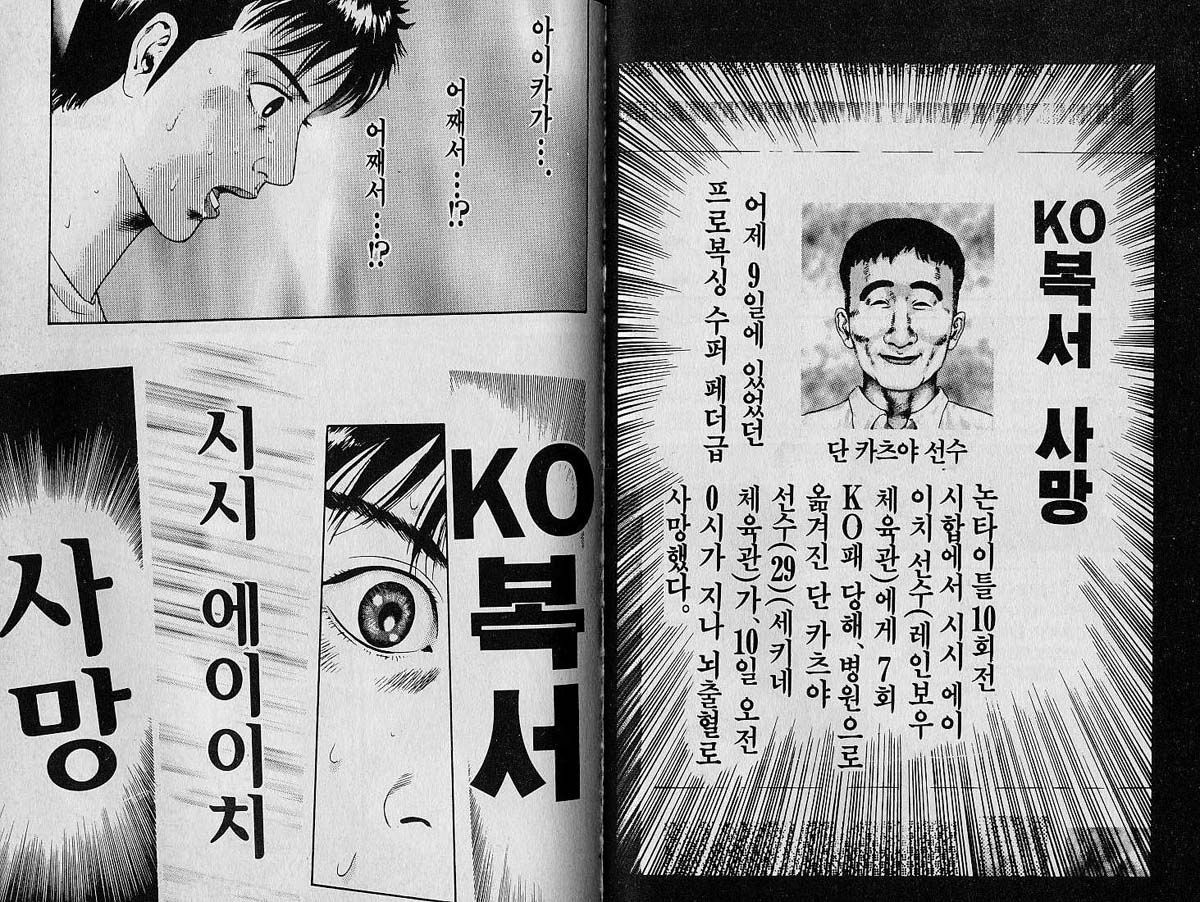 KO복서 사망
어제 9일에 있었던
프로복싱 수퍼 페더급
단 카츠야 선수
논타이틀 10회전
시합에서 시시 에이
이치 선수(레인보우
체육관)에게 7회
KO패 당해, 병원으로
옮겨진 단 카츠야
선수(29)(세키네
체육관)가, 10일 오전
0시가 지나 뇌출혈로
사망했다.
아이카가….
어째서…⁉
어째서…⁉
KO복서
시시 에이이치
사망